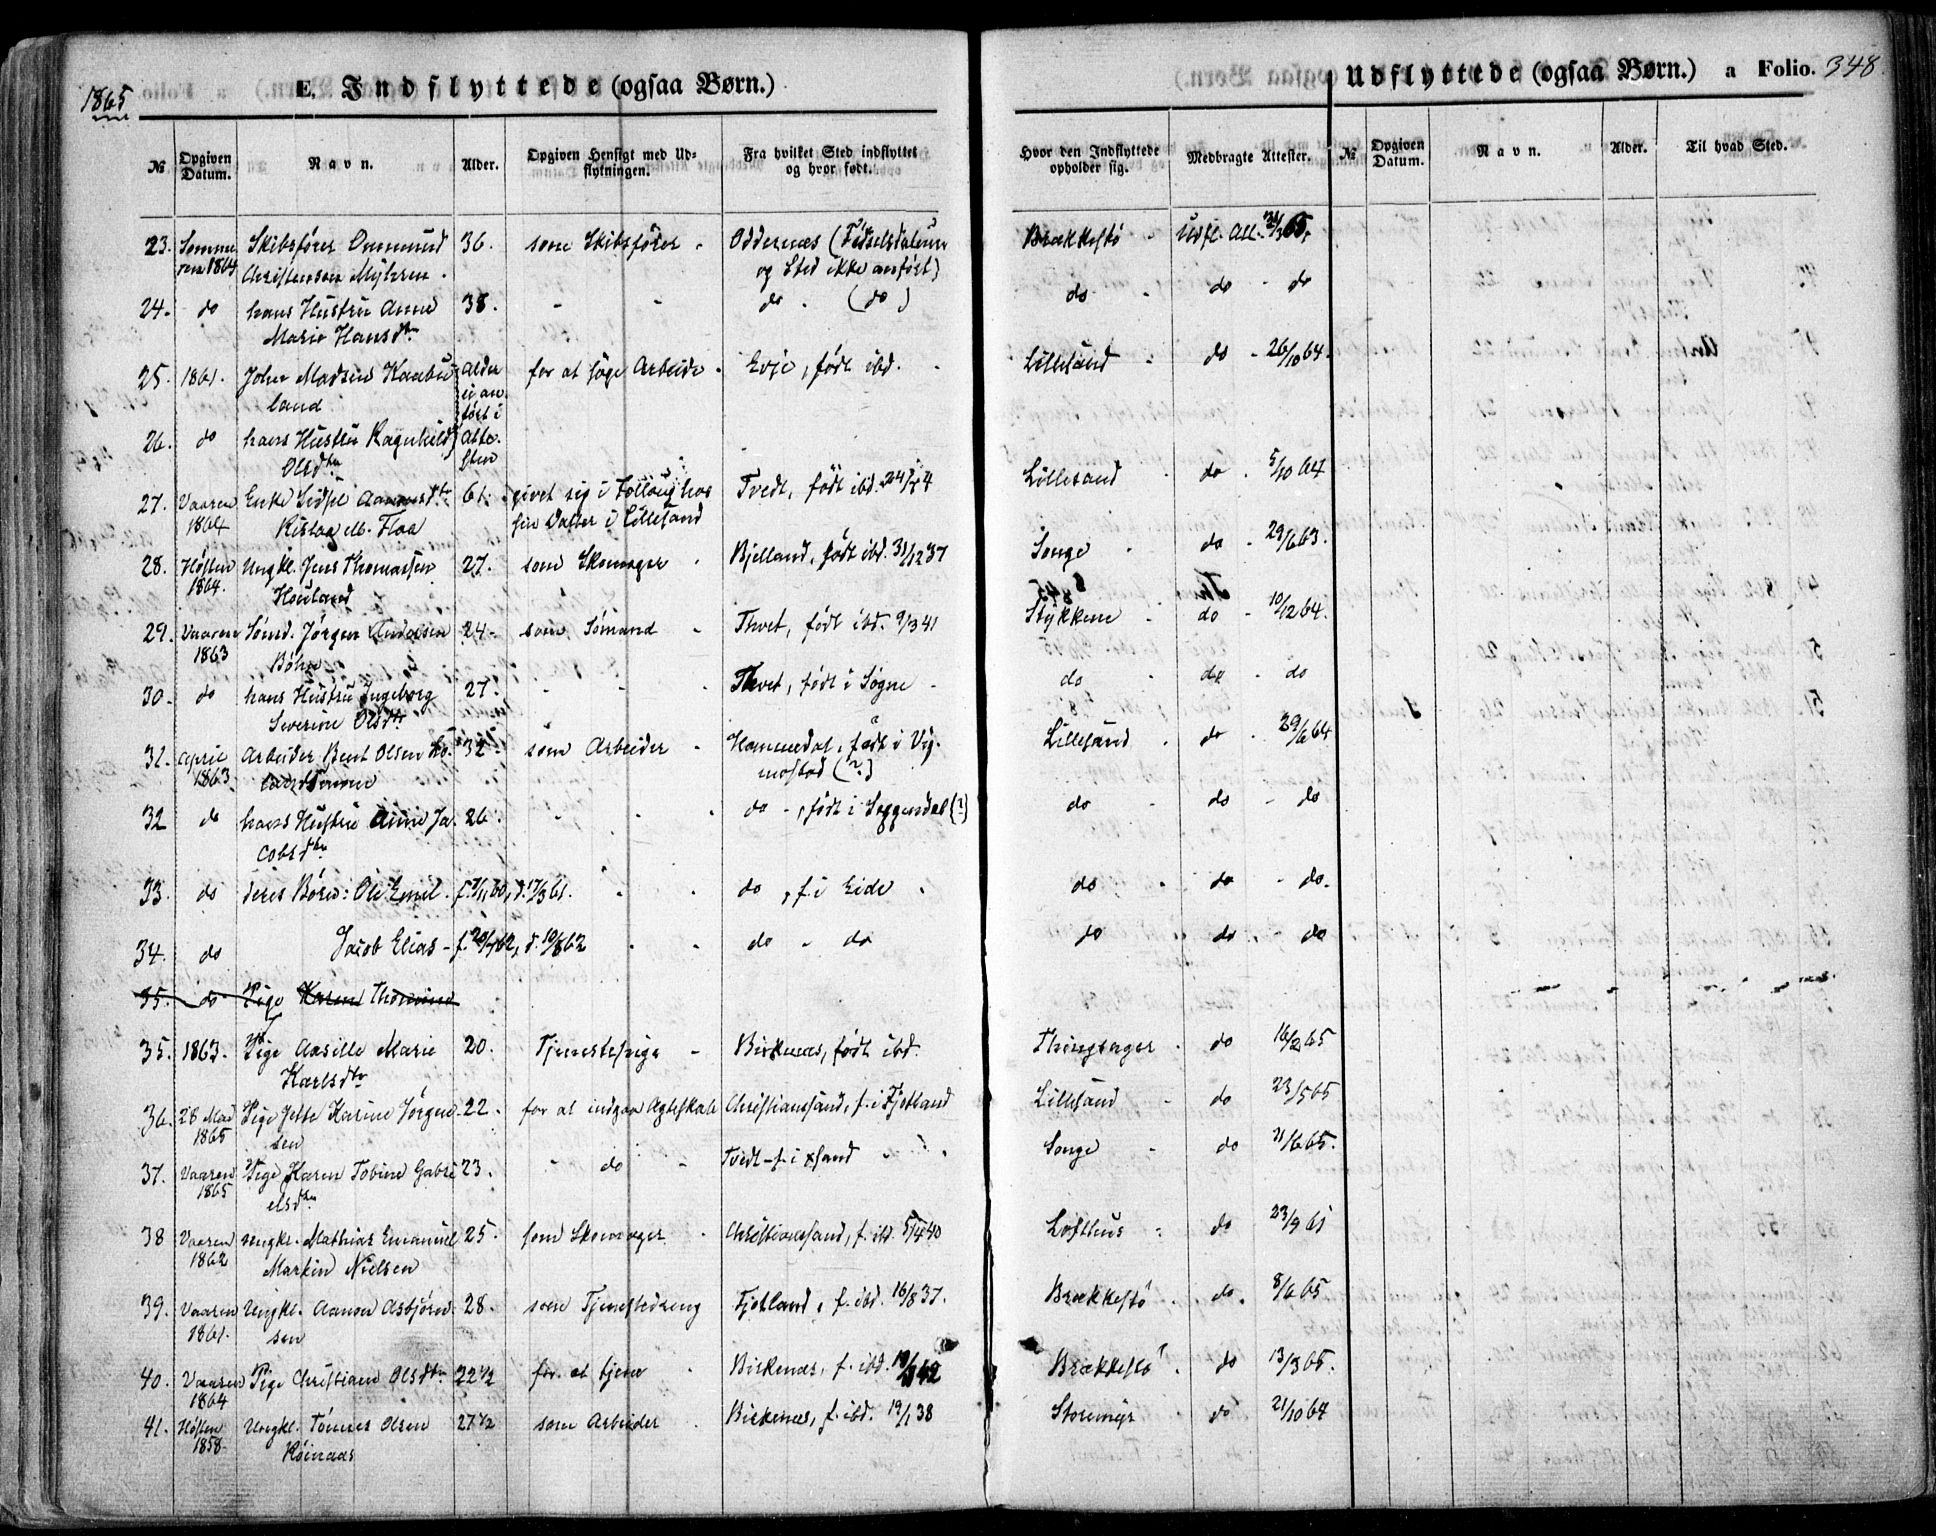 1865
E. Indflyttede (ogsaa Børn.)
Udflyttede (ogsaa Børn.) a Folio. 348
№ Opgiven Datum. Navn. Alder. Opgiven Hensigt med Udflytningen. Fra hvilket Sted indflyttet og hvor født. Hvor den Indflyttede opholder sig. Medbragte Attester. № Opgiven Datum. Navn. Alder. Til hvad Sted.
23. Somme Skibsfører Ommund 36. som Skibsfører Oddernæs (Fødselsdatum Brækkestø Udfl. Att. 65.
ren 1864 Christensen Myhren og Sted ikke anført)
24. do hans Hustru Anne 38. do (do) do do do
Marie Hansdtr
25. 1861. John Madsen Kaabu Alder for at søge Arbeide Evje, født ibd. Lillesand do 26/10 64.
land ei an
ført i
26. do hans Hustru Ragnhild Atte Lillesand do 5/10 64
Olsdtr sten
27. Vaaren Enke Sidsel Aanonsdtr 61. givet sig i Follaug hos Tvedt, født ibd. Songe do 29/6 63.
1864 Flaa sin Datter i Lillesand
28. Høsten Ungkl. Jens Thomassen 27. som Skomager Bjelland, født ibd. 31/12 37 Stykkene do 10/12 64.
1864. Houland
29. Vaaren Sømd. Jørgen Andersen 24 som Sømand Thvet, født ibd. 9/3 41 do do do
1863 Bøhn
30. do hans Hustru Ingeborg 27. Thvet, født i Søgne
Severine Olsdtr
31. April Arbeider Bent Olsen 32 som Arbeider Hommedal, født i Vig- Lillesand do 29/6 64
1863. mostad (?)
32 do hans Hustru Anne Ja 26. do, født i Soggendal (?) do do do
cobsdtr
33. do deres Børn: Ole Emil f. 7/11 60, d. 17/3 61. do, f. i Eide do do do.
34. do Jacob Elias f. 20/7 62, d. 10/8 62 do do do do do
35. do Pige Karen Thomine
35. 1863. Pige Aasille Marie 20. Tjenestepige Birkenæs, født ibd. Thingsager do 16/2 65
Karlsdtr
36. 28 Mai Pige Jette Karine Jørgen 22. for at indgaa Ægteskab Christianssand, f. i Fjotland Lillesand do 23/5 65
1865 sen
37. Vaaren Pige Karen Tobine Gabri 23. do Tvedt f. i Xsand Songe do 21/6 65.
1865 elsdtr
38 Vaaren ungkl. Mathias Emanuel 25. som Skomager Christianssand, f. ibd. 5/4 40 Lofthus do 23/9 61
1862 Markin Nielsen
39. Vaaren Ungkl. Aanon Asbjørn 28. som Tjenestedreng Fjotland, f. ibd. 16/8 37. Brækkestø do. 8/6 65
1861. sen
40. Vaaren Pige Christiane Olsdtr 22½ for at tjene Birkenæs, f. ibd. 42 Brækkestø do 13/3 65.
1864
41. Høsten Ungkl. Tønnes Olsen 27½ som Arbeider Birkenæs, f. ibd. 19/1 38 Storemyr do 21/10 64
1858. Røinaas